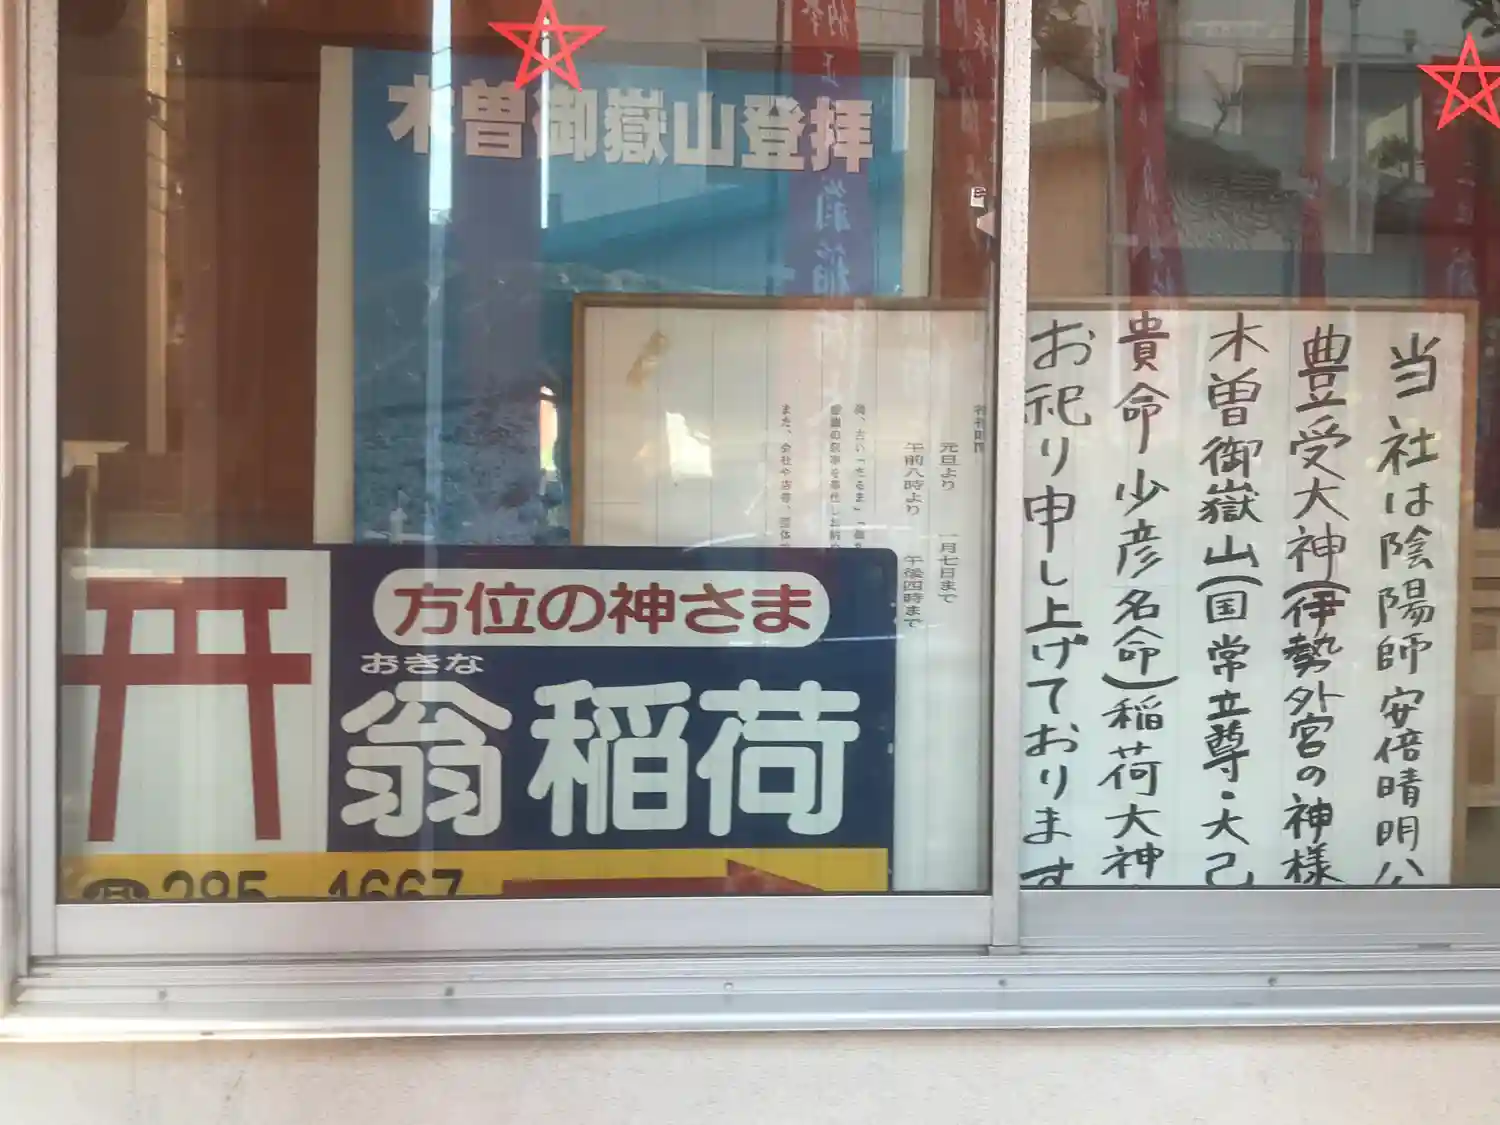 木曽御嶽山登拝
方位の神さま
おきな
翁稲荷
285-1667
元旦より 一月七日まで
午前八時より 午後四時まで
また、会社や店等、団体
当社は陰陽師安倍晴明公
豊受大神(伊勢外宮の神様
木曽御嶽山(国常立尊・大己
貴命少彦名命)稲荷大神
お祀り申し上げております